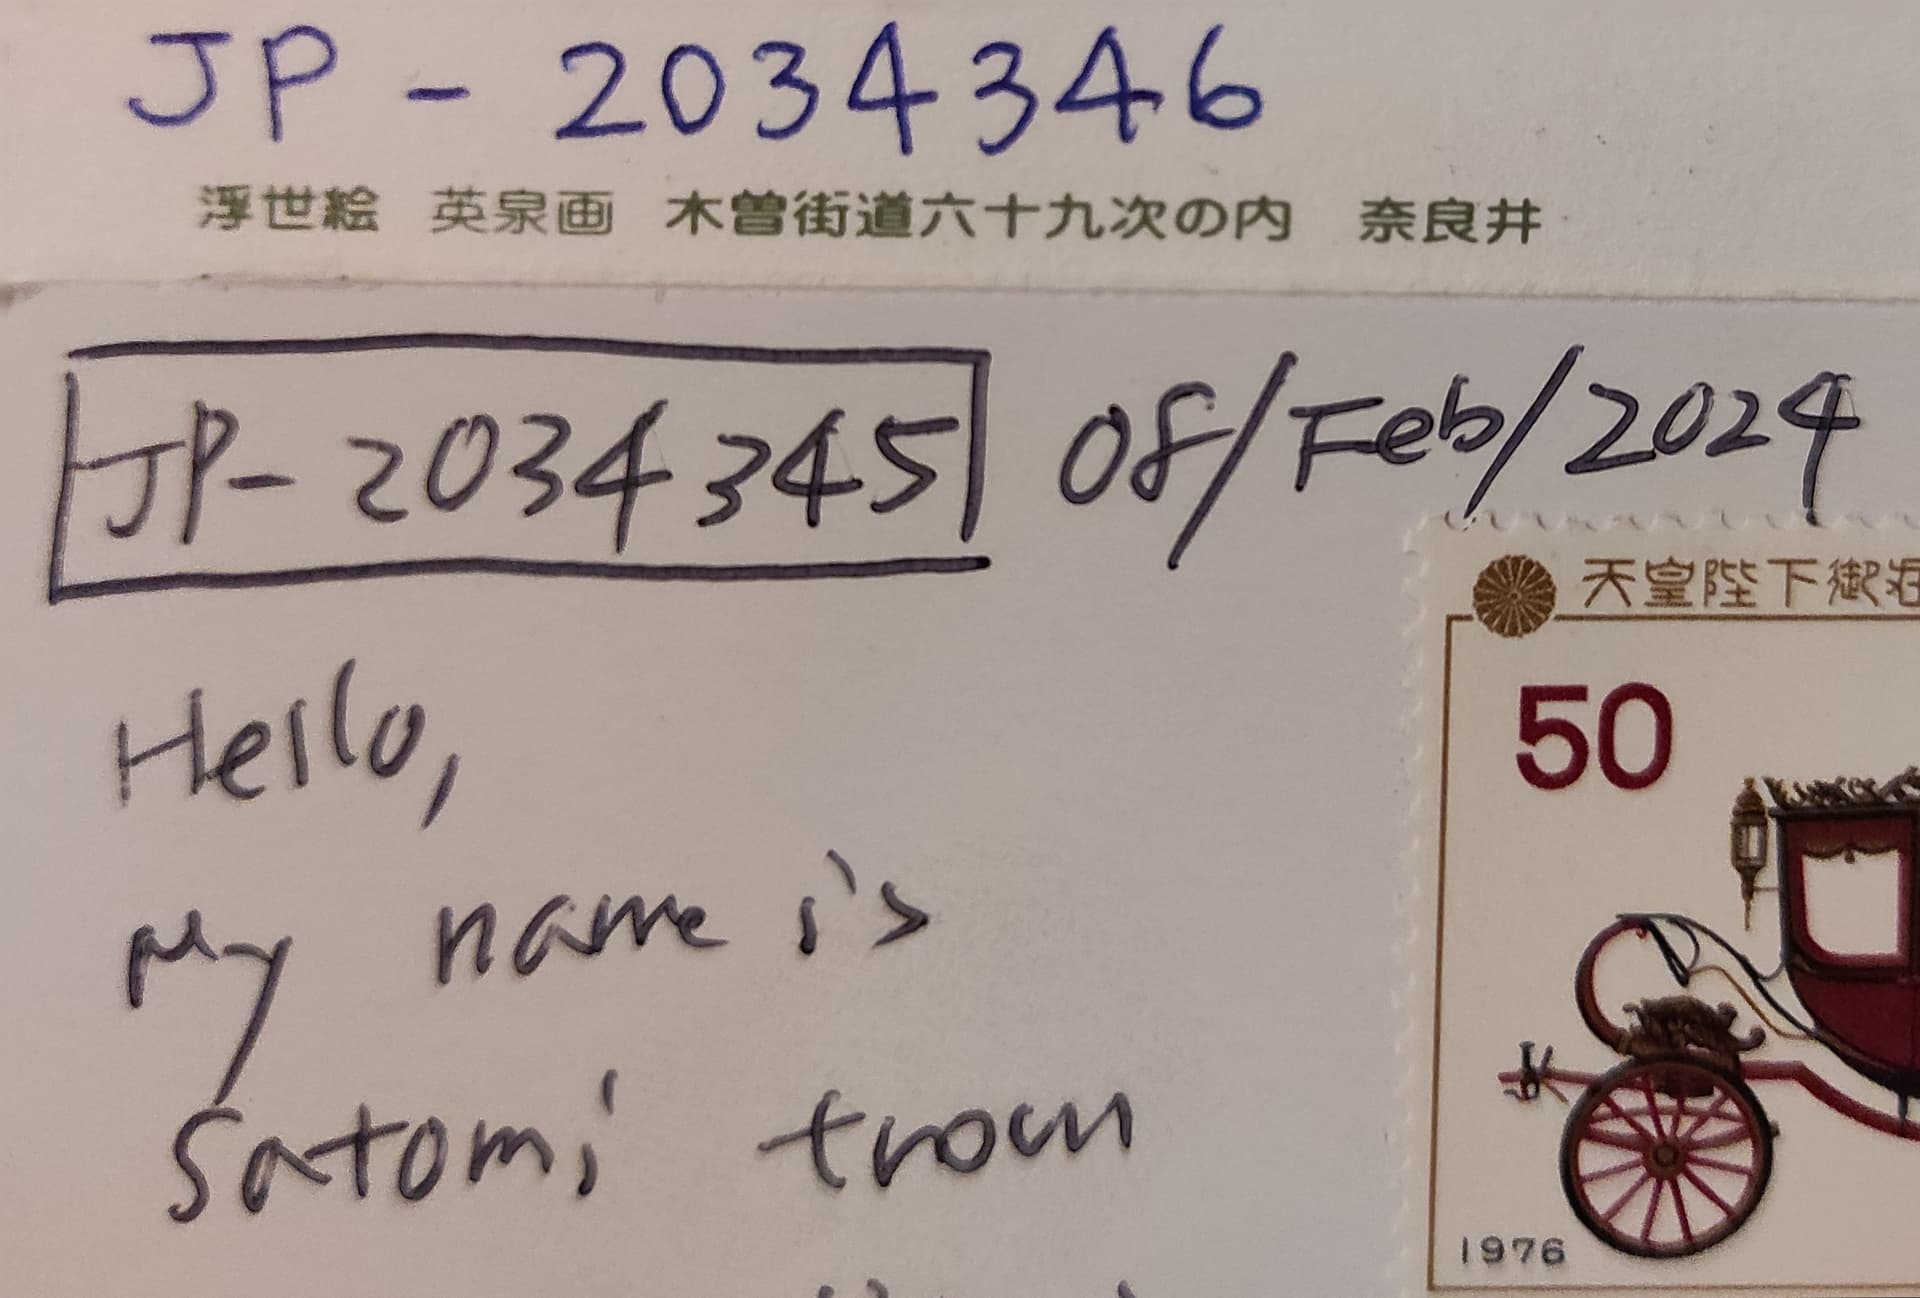 JP - 2034346
浮世絵 英泉画 木曽街道六十九次の内 奈良井
JP-2034345 08/Feb/2024
天皇陛下御在
50
Hello,
My name is
Satomi from
1976